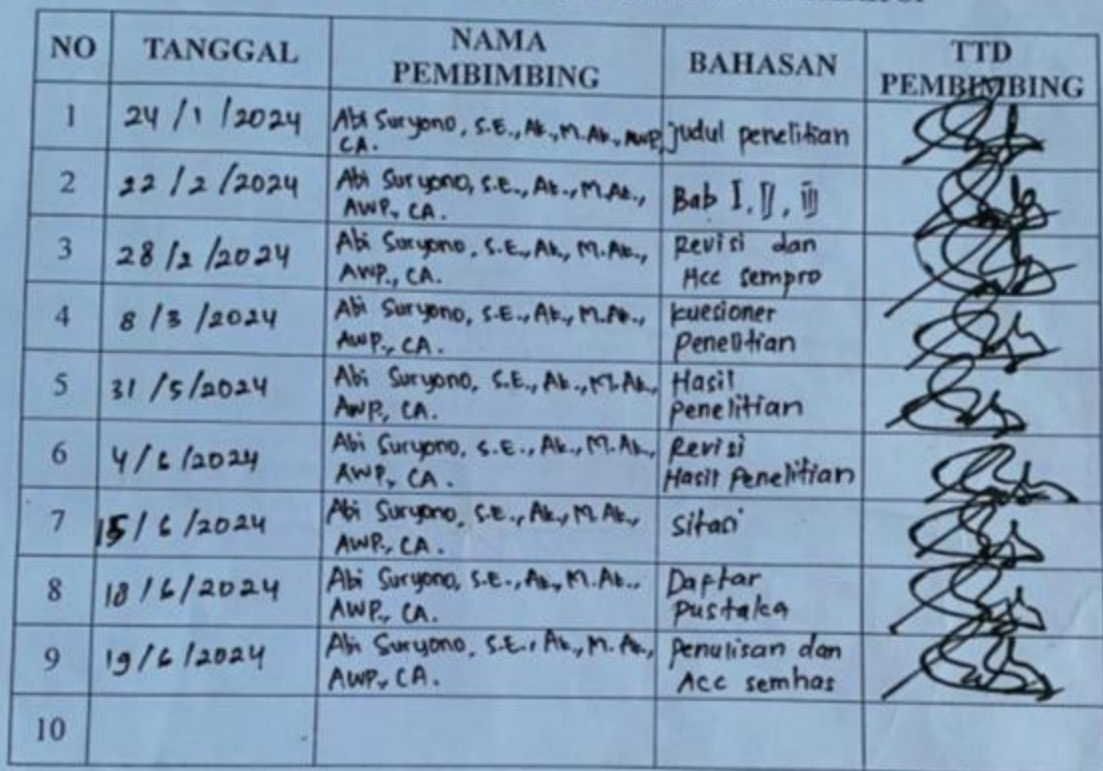 NO TANGGAL NAMA PEMBIMBING BAHASAN TTD PEMBIMBING
1 24/1/2024 Abi Suryono, S.E., Ak., M.Ak., AWP, CA. judul penelitian
2 22/2/2024 Abi Suryono, S.E., Ak., M.Ak., AWP., CA. Bab I, II, III
3 28/2/2024 Abi Suryono, S.E., Ak., M.Ak., AWP., CA. Revisi dan Acc sempro
4 8/3/2024 Abi Suryono, S.E., Ak., M.Ak., AWP., CA. kuesioner Penelitian
5 31/5/2024 Abi Suryono, S.E., Ak., M.Ak., AWP., CA. Hasil penelitian
6 4/6/2024 Abi Suryono, S.E., Ak., M.Ak., AWP, CA. Revisi Hasil Penelitian
7 15/6/2024 Abi Suryono, S.E., Ak., M.Ak., AWP., CA. Sitasi
8 18/6/2024 Abi Suryono, S.E., Ak., M.Ak., AWP., CA. Daftar Pustaka
9 19/6/2024 Abi Suryono, S.E., Ak., M.Ak., AWP, CA. Penulisan dan Acc semhas
10